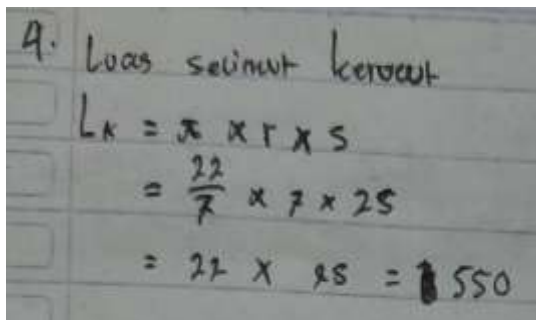 4. Luas selimut kerucut
Lk = π x r x s
= 22/7 x 7 x 25
= 22 x 25 = 550